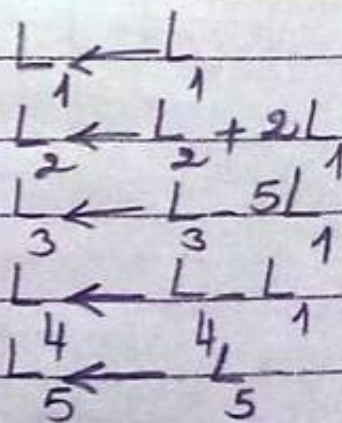 L₁ ← L₁
L₂ ← L₂ + 2L₁
L₃ ← L₃ - 5L₁
L₄ ← L₄ - L₁
L₅ ← L₅